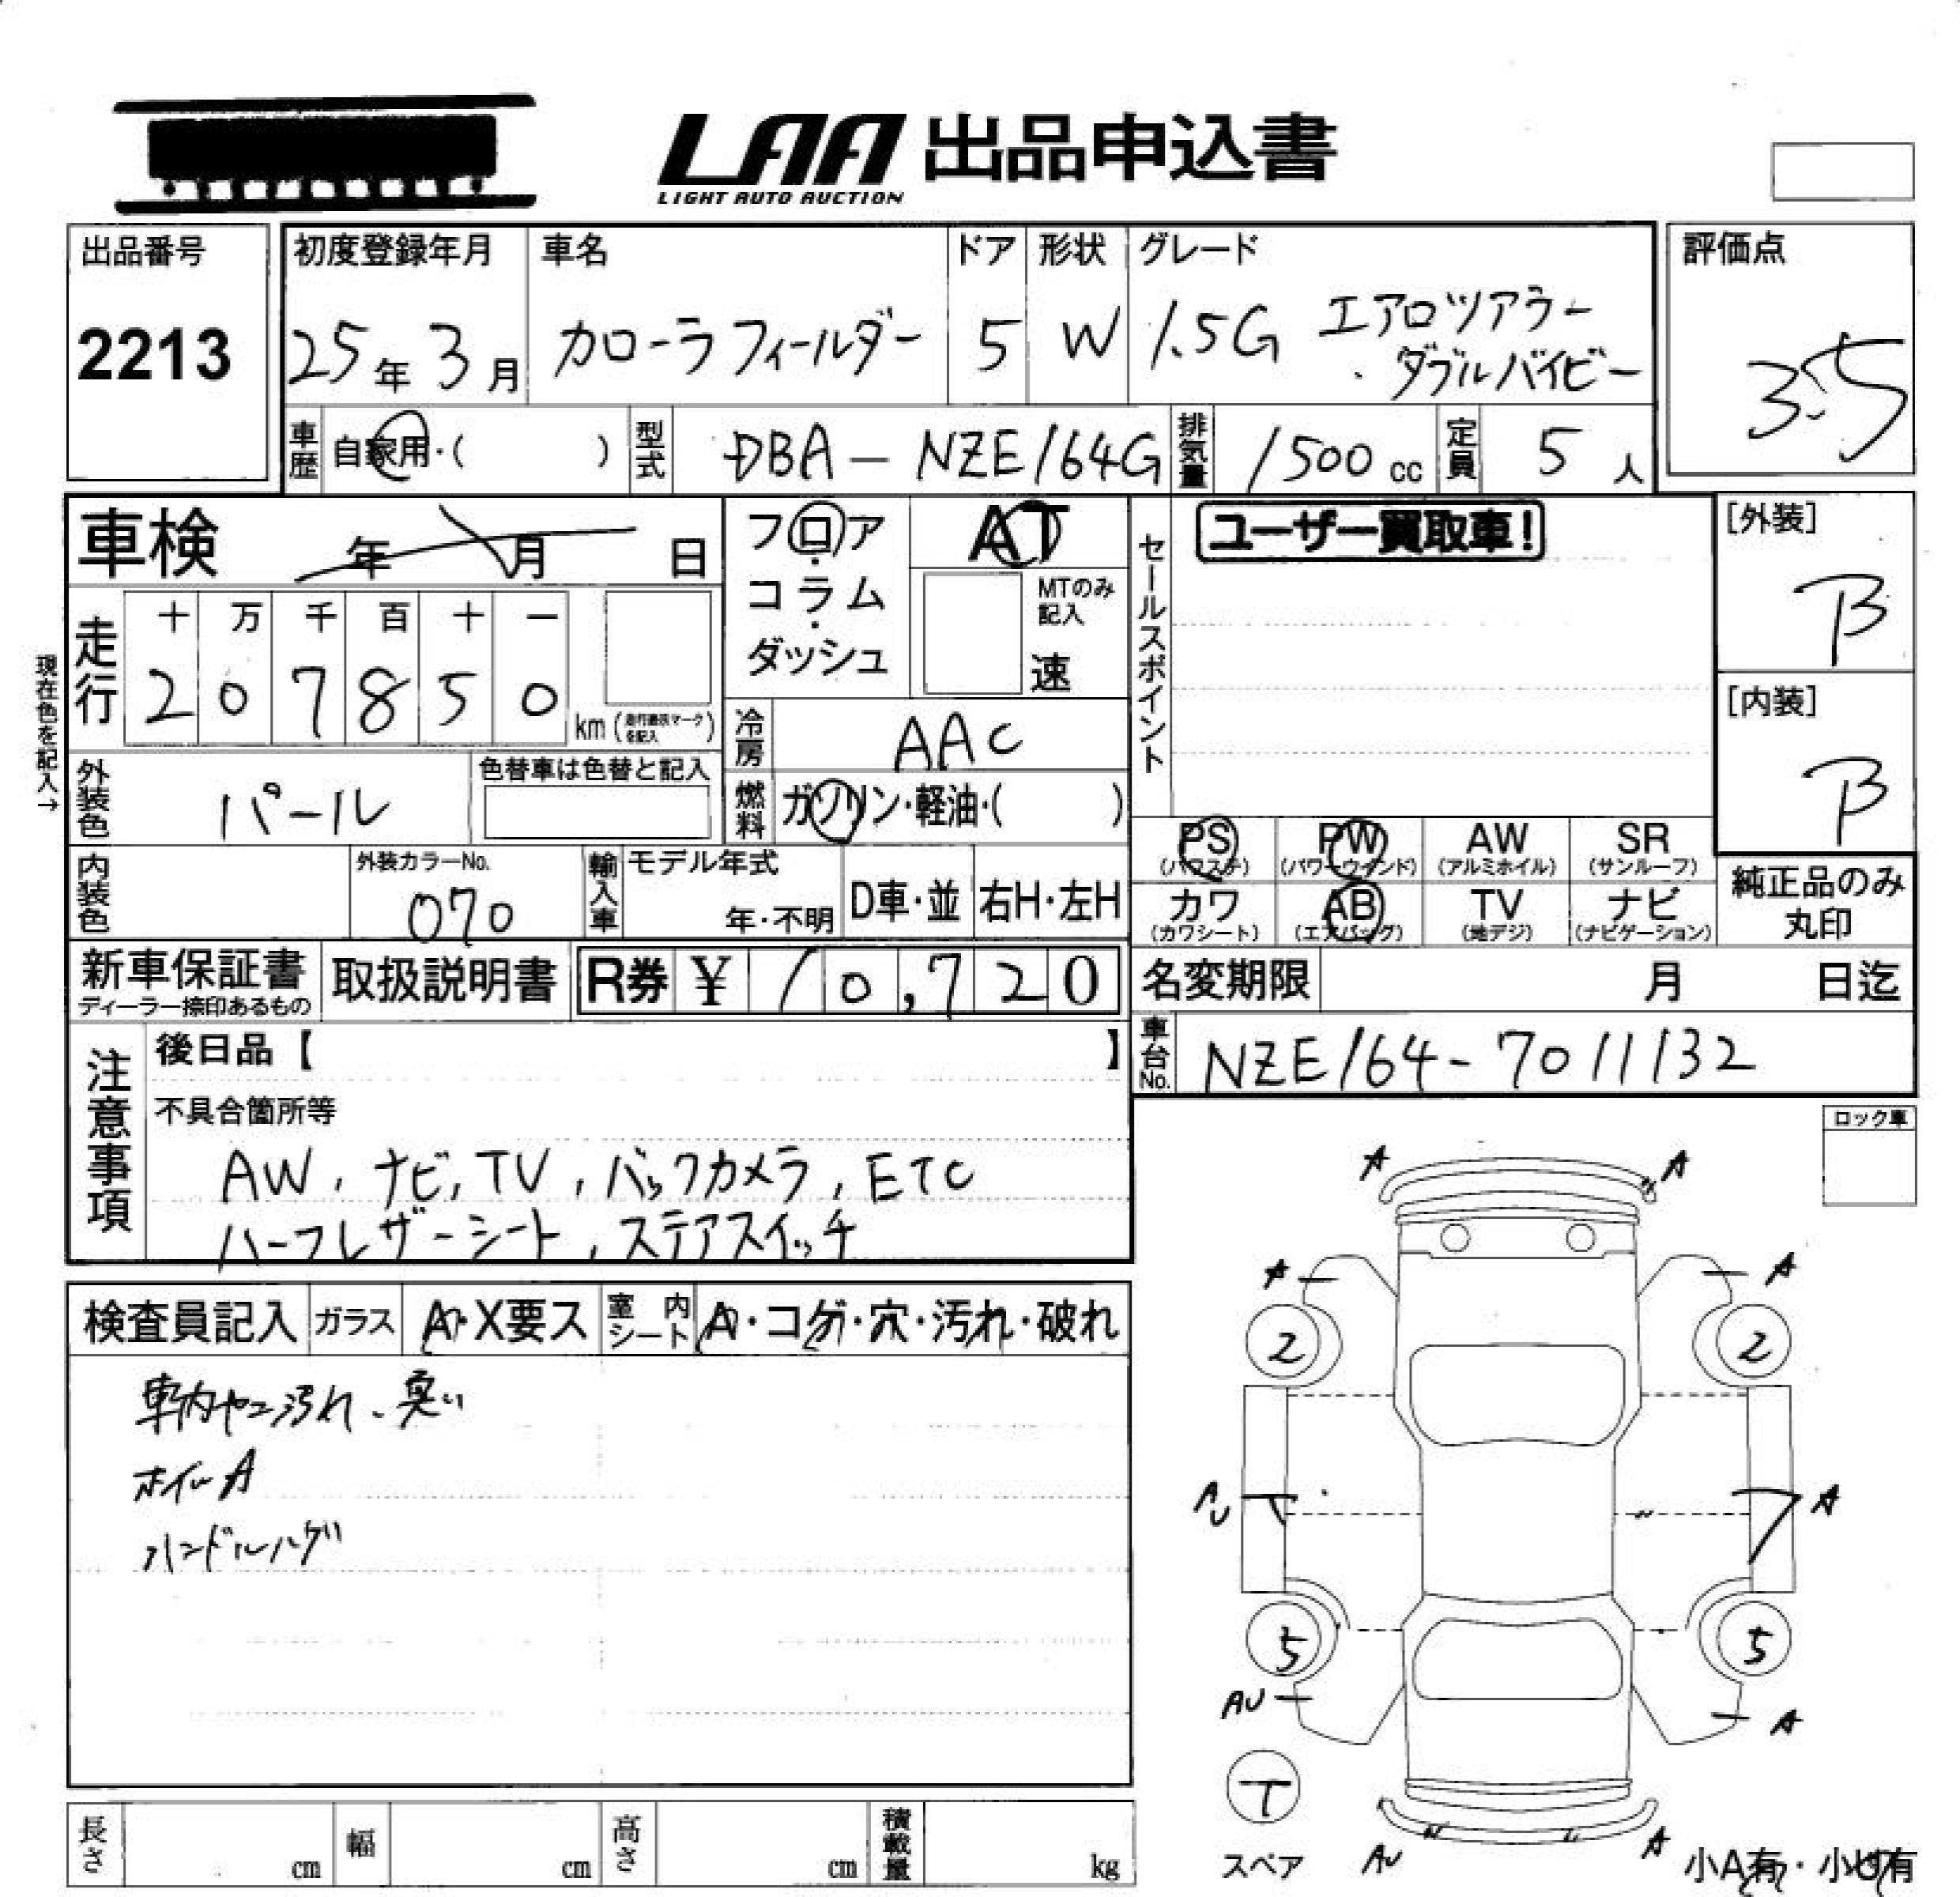 LAA 出品申込書
LIGHT AUTO AUCTION
出品番号
2213
初度登録年月
25年3月
車名
カローラフィールダー
ドア
5
形状
W
グレード
1.5G エアロツアラー
・ダブルバイビー
評価点
3.5
車歴
自家用・( )
型式
DBA-NZE164G
排気量
1500cc
定員
5人
車検 年 月 日
フロア
・
コラム
・
ダッシュ
AT
MTのみ
記入
速
セールスポイント
ユーザー買取車!
[外装]
B
[内装]
B
現在色を記入→
走行
十 万 千 百 十 一
2 0 7 8 5 0
km
冷房
AAC
外装色
パール
色替車は色替と記入
燃料
ガソリン・軽油・( )
PS
(パワステ)
PW
(パワーウインド)
AW
(アルミホイル)
SR
(サンルーフ)
カワ
(カワシート)
AB
(エアバッグ)
TV
(地デジ)
ナビ
(ナビゲーション)
純正品のみ
丸印
内装色
外装カラーNo.
070
輸入車
モデル年式
年・不明
D車・並
右H・左H
新車保証書
ディーラー捺印あるもの
取扱説明書
R券 ¥ 10,720
名変期限 月 日迄
車台No.
NZE164-7011132
注意事項
後日品【 】
不具合箇所等
AW, ナビ, TV, バックカメラ, ETC
ハーフレザーシート, ステアスイッチ
ロック車
検査員記入
ガラス
A・X要ス
室内シート
A・コゲ・穴・汚れ・破れ
車内ヤニ汚れ、臭い
ホイルA
ハンドルハゲ
A A
A A
2 2
AU A
5 5
AU A
T
スペア
AU A
小A有・小U有
長さ cm
幅 cm
高さ cm
積載量 kg